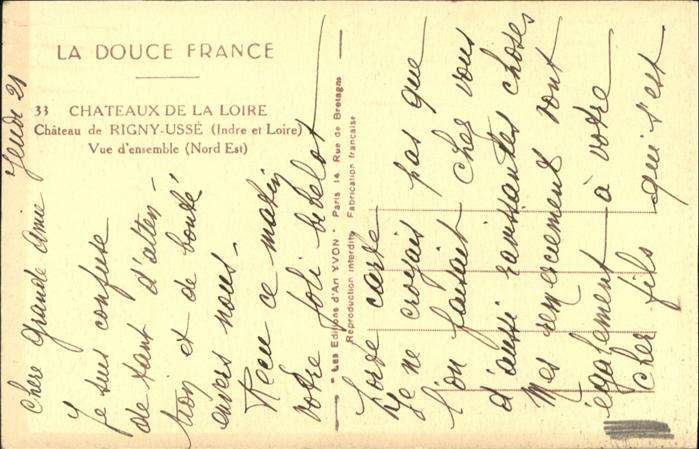 LA DOUCE FRANCE
33 CHATEAUX DE LA LOIRE
Château de RIGNY-USSÉ (Indre et Loire)
Vue d'ensemble (Nord Est)
"Les Editions d'Art YVON" Paris 14, Rue de Bretagne
Reproduction interdite Fabrication française
Jeudi 21
Chère Grande Amie
Je suis confuse
de tant d'atten-
tion et de bonté
envers nous -
Recu ce matin
votre joli bibelot
carte
Je ne croyais pas que
l'on faisait chez vous
d'aussi ravissantes choses
Mes remerciements vont
également à votre
cher fils qui s'est